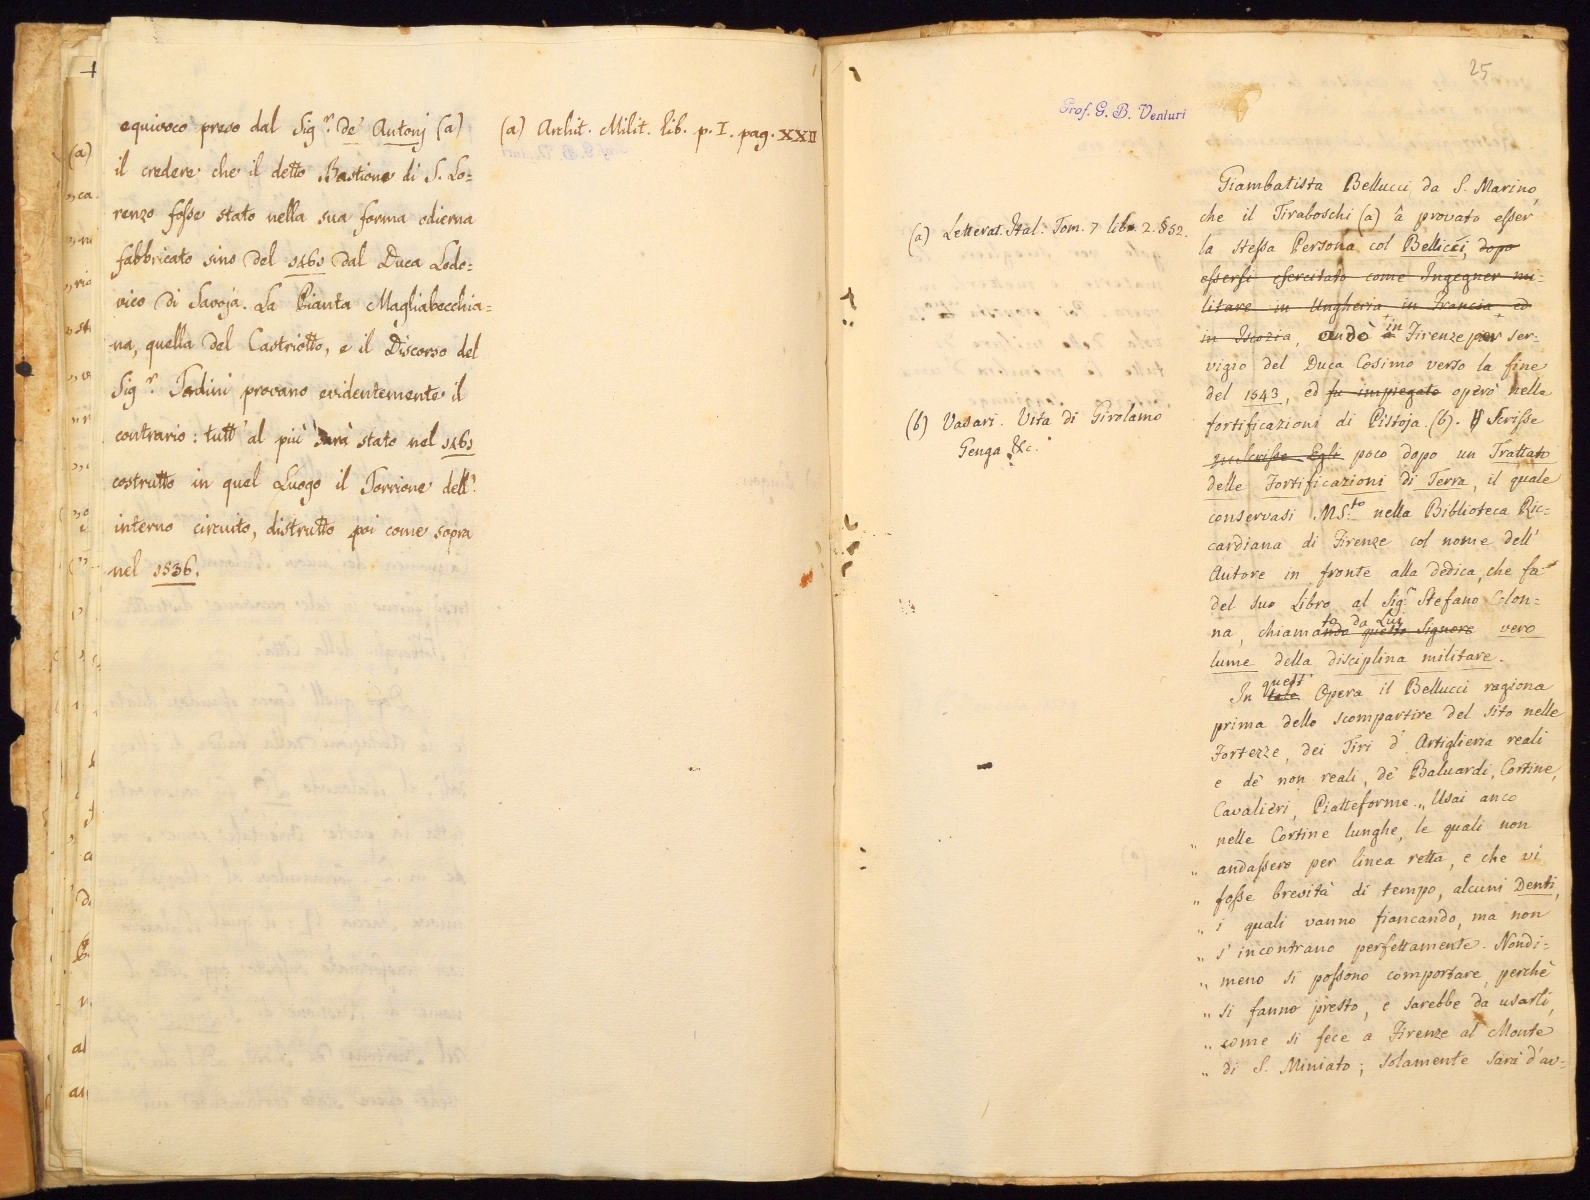 equivoco preso dal Sig.r de' Antonj (a)
il credere che il detto Bastione di S. Lo=
renzo fosse stato nella sua forma odierna
fabbricato sino del 1461 dal Duca Lodo=
vico di Savoja. La Pianta Magliabecchia=
na, quella del Castriotto, e il Discorso del
Sig.r Tadini provano evidentemente il
contrario: tutt' al più sarà stato nel 1461
costrutto in quel Luogo il Torrione dell'
interno circuito, distrutto poi come sopra
nel 1536.
(a) Archit. Milit. lib. p. I. pag. XXII
25
Prof. G. B. Venturi
(a) Letterat. Ital. Tom. 7 lib. 2. §52.
(b) Vasari. Vita di Girolamo
Genga &c.
Giambatista Bellucci da S. Marino,
che il Tiraboschi (a) à provato esser
la stessa Persona col Bellicci, dopo
essersi esercitato come Ingegner mi-
litare in Ungheria in Francia ed
in Iscozia, andò a in Firenze per ser-
vigio del Duca Cosimo verso la fine
del 1543, ed fu impiegato operò nelle
fortificazioni di Pistoja. (b). Scrisse
Scrisse Egli poco dopo un Trattato
delle Fortificazioni di Terra, il quale
conservasi MS.to nella Biblioteca Ric=
cardiana di Firenze col nome dell'
Autore in fronte alla dedica, che fa
del suo Libro al Sig.r Stefano Colon=
na, chiamando questo Signore to da Lui vero
lume della disciplina militare.
In tale quest' Opera il Bellucci ragiona
prima dello scompartire del sito nelle
Fortezze, dei Tiri d' Artiglieria reali
e de' non reali, de' Baluardi, Cortine,
Cavalieri, Piatteforme. „ Usai anco
„ nelle Cortine lunghe, le quali non
„ andassero per linea retta, e che vi
„ fosse brevità di tempo, alcuni Denti,
„ i quali vanno fiancando, ma non
„ s' incontrano perfettamente. Nondi=
„ meno si possono comportare, perchè
„ si fanno presto, e sarebbe da usarli,
„ come si fece a Firenze al Monte
„ di S. Miniato; solamente sarà d'av=